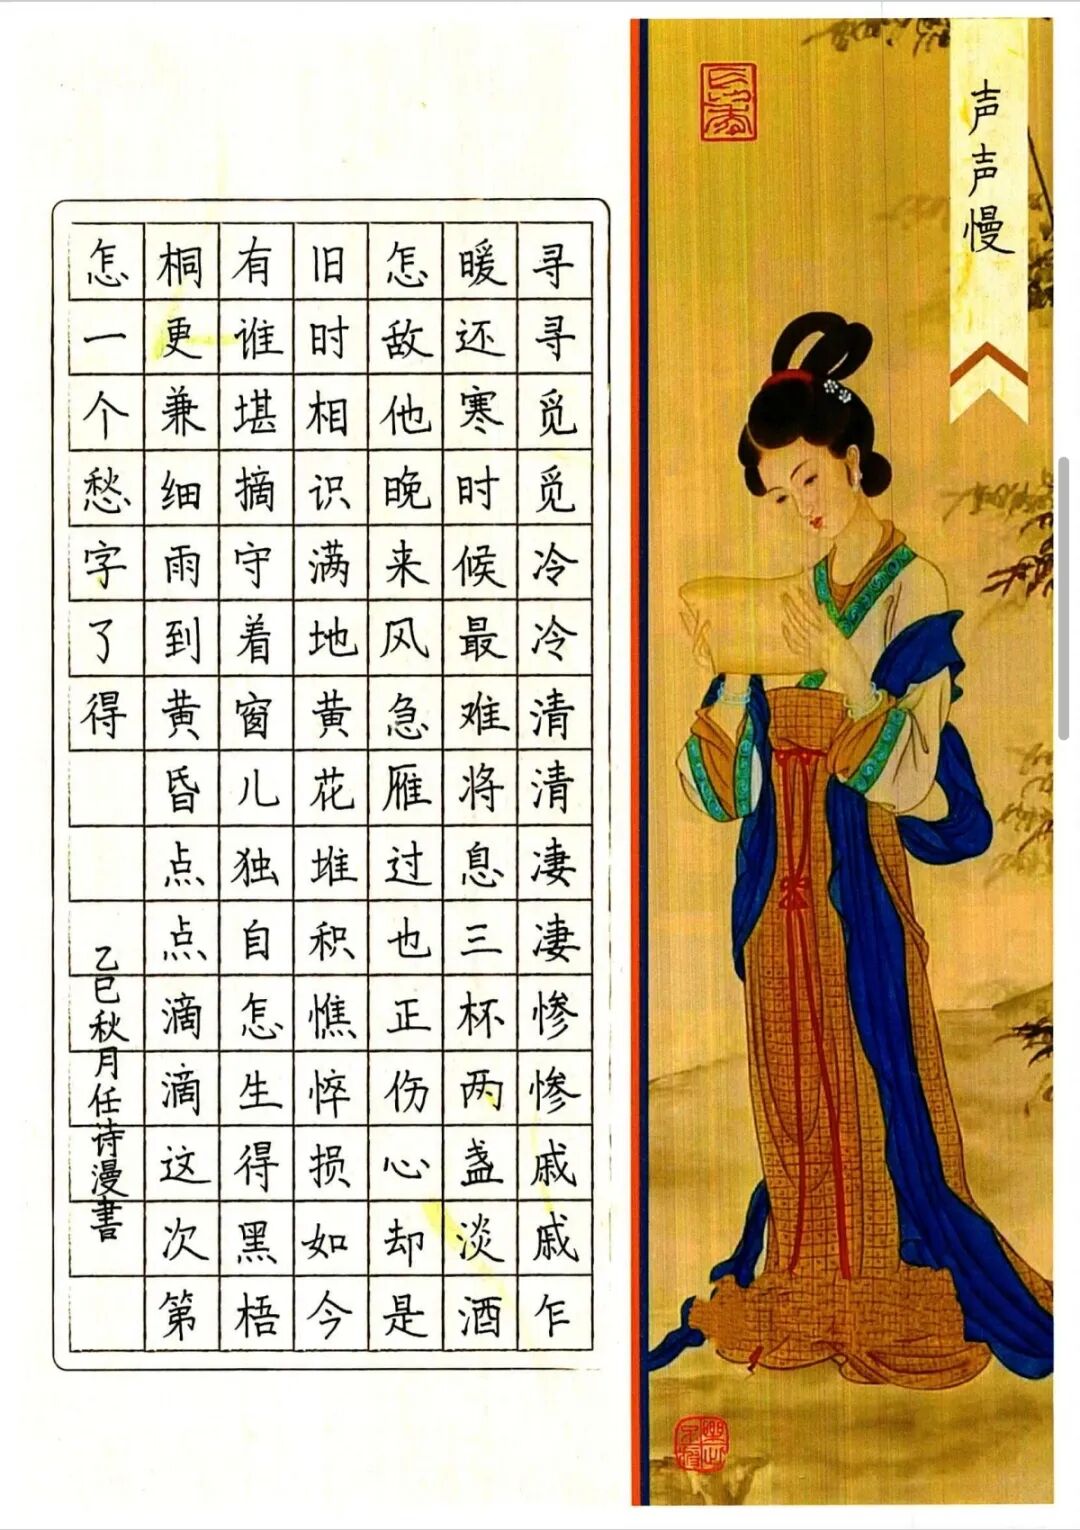 声声慢
寻寻觅觅冷冷清清凄凄惨惨戚戚乍
暖还寒时候最难将息三杯两盏淡酒
怎敌他晚来风急雁过也正伤心却是
旧时相识满地黄花堆积憔悴损如今
有谁堪摘守着窗儿独自怎生得黑梧
桐更兼细雨到黄昏点点滴滴这次第
怎一个愁字了得
乙巳秋月任诗漫書